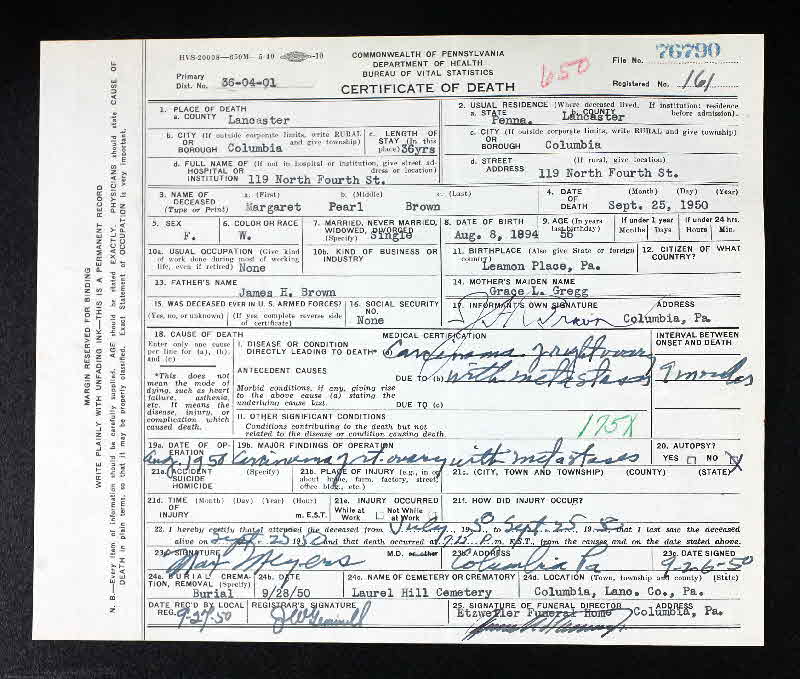 HVS-20008—650M—5-49 —10
COMMONWEALTH OF PENNSYLVANIA
DEPARTMENT OF HEALTH
BUREAU OF VITAL STATISTICS
CERTIFICATE OF DEATH
650
File No. 76790
Registered No. 161
Primary
Dist. No. 36-04-01
MARGIN RESERVED FOR BINDING
WRITE PLAINLY WITH UNFADING INK—THIS IS A PERMANENT RECORD
N. B.—Every item of information should be carefully supplied. AGE should be stated EXACTLY. PHYSICIANS should state CAUSE OF
DEATH in plain terms, so that it may be properly classified. Exact Statement of OCCUPATION is very important.
1. PLACE OF DEATH
a. COUNTY Lancaster
2. USUAL RESIDENCE (Where deceased lived. If institution: residence before admission).
a. STATE Penna. b. COUNTY Lancaster
b. CITY (If outside corporate limits, write RURAL and give township)
OR
BOROUGH Columbia
c. LENGTH OF STAY (In this place) 36yrs
c. CITY (If outside corporate limits, write RURAL and give township)
OR
BOROUGH Columbia
d. FULL NAME OF (If not in hospital or institution, give street address or location)
HOSPITAL OR
INSTITUTION 119 North Fourth St.
d. STREET ADDRESS (If rural, give location)
119 North Fourth St.
3. NAME OF DECEASED (Type or Print)
a. (First) b. (Middle) c. (Last)
Margaret Pearl Brown
4. DATE OF DEATH (Month) (Day) (Year)
Sept. 25, 1950
5. SEX
F.
6. COLOR OR RACE
W.
7. MARRIED, NEVER MARRIED, WIDOWED, DIVORCED (Specify) Single
8. DATE OF BIRTH
Aug. 8, 1894
9. AGE (In years last birthday) 56
If under 1 year Months Days
If under 24 hrs. Hours Min.
10a. USUAL OCCUPATION (Give kind of work done during most of working life, even if retired) None
10b. KIND OF BUSINESS OR INDUSTRY
11. BIRTHPLACE (Also give State or foreign country)
Leamon Place, Pa.
12. CITIZEN OF WHAT COUNTRY?
13. FATHER'S NAME
James H. Brown
14. MOTHER'S MAIDEN NAME
Grace L. Gregg
15. WAS DECEASED EVER IN U. S. ARMED FORCES?
(Yes, no, or unknown) (If yes, complete reverse side of certificate)
16. SOCIAL SECURITY NO.
None
17. INFORMANT'S OWN SIGNATURE ADDRESS
Columbia, Pa
18. CAUSE OF DEATH
Enter only one cause per line for (a), (b), and (c)
*This does not mean the mode of dying, such as heart failure, asthenia, etc. It means the disease, injury, or complication which caused death.
MEDICAL CERTIFICATION
I. DISEASE OR CONDITION
DIRECTLY LEADING TO DEATH* (a) Carcinoma of right ovary
ANTECEDENT CAUSES
Morbid conditions, if any, giving rise to the above cause (a) stating the underlying cause last.
DUE TO (b) with metastases
DUE TO (c)
INTERVAL BETWEEN ONSET AND DEATH
II. OTHER SIGNIFICANT CONDITIONS
Conditions contributing to the death but not related to the disease or condition causing death.
175X
19a. DATE OF OPERATION
Aug 1950
19b. MAJOR FINDINGS OF OPERATION
Carcinoma of rt. ovary with metastases
20. AUTOPSY?
YES NO X
21a. ACCIDENT SUICIDE HOMICIDE (Specify)
21b. PLACE OF INJURY (e.g., in or about home, farm, factory, street, office bldg., etc.)
21c. (CITY, TOWN AND TOWNSHIP) (COUNTY) (STATE)
21d. TIME OF INJURY (Month) (Day) (Year) (Hour) m. EST.
21e. INJURY OCCURRED
While at Work Not While at Work
21f. HOW DID INJURY OCCUR?
22. I hereby certify that I attended the deceased from July, 1950 to Sept. 25, 1950 that I last saw the deceased
alive on Sept. 25 1950 and that death occurred at P.m. E.S.T., from the causes and on the date stated above.
23a. SIGNATURE M.D. or other
Meyers
23b. ADDRESS
Columbia Pa
23c. DATE SIGNED
9-26-50
24a. BURIAL, CREMATION, REMOVAL (Specify)
Burial
24b. DATE
9/28/50
24c. NAME OF CEMETERY OR CREMATORY
Laurel Hill Cemetery
24d. LOCATION (Town, township and county) (State)
Columbia, Lanc. Co., Pa.
DATE REC'D BY LOCAL REG.
9-27-50
REGISTRAR'S SIGNATURE
25. SIGNATURE OF FUNERAL DIRECTOR ADDRESS
Etzweiler Funeral Home Columbia, Pa.